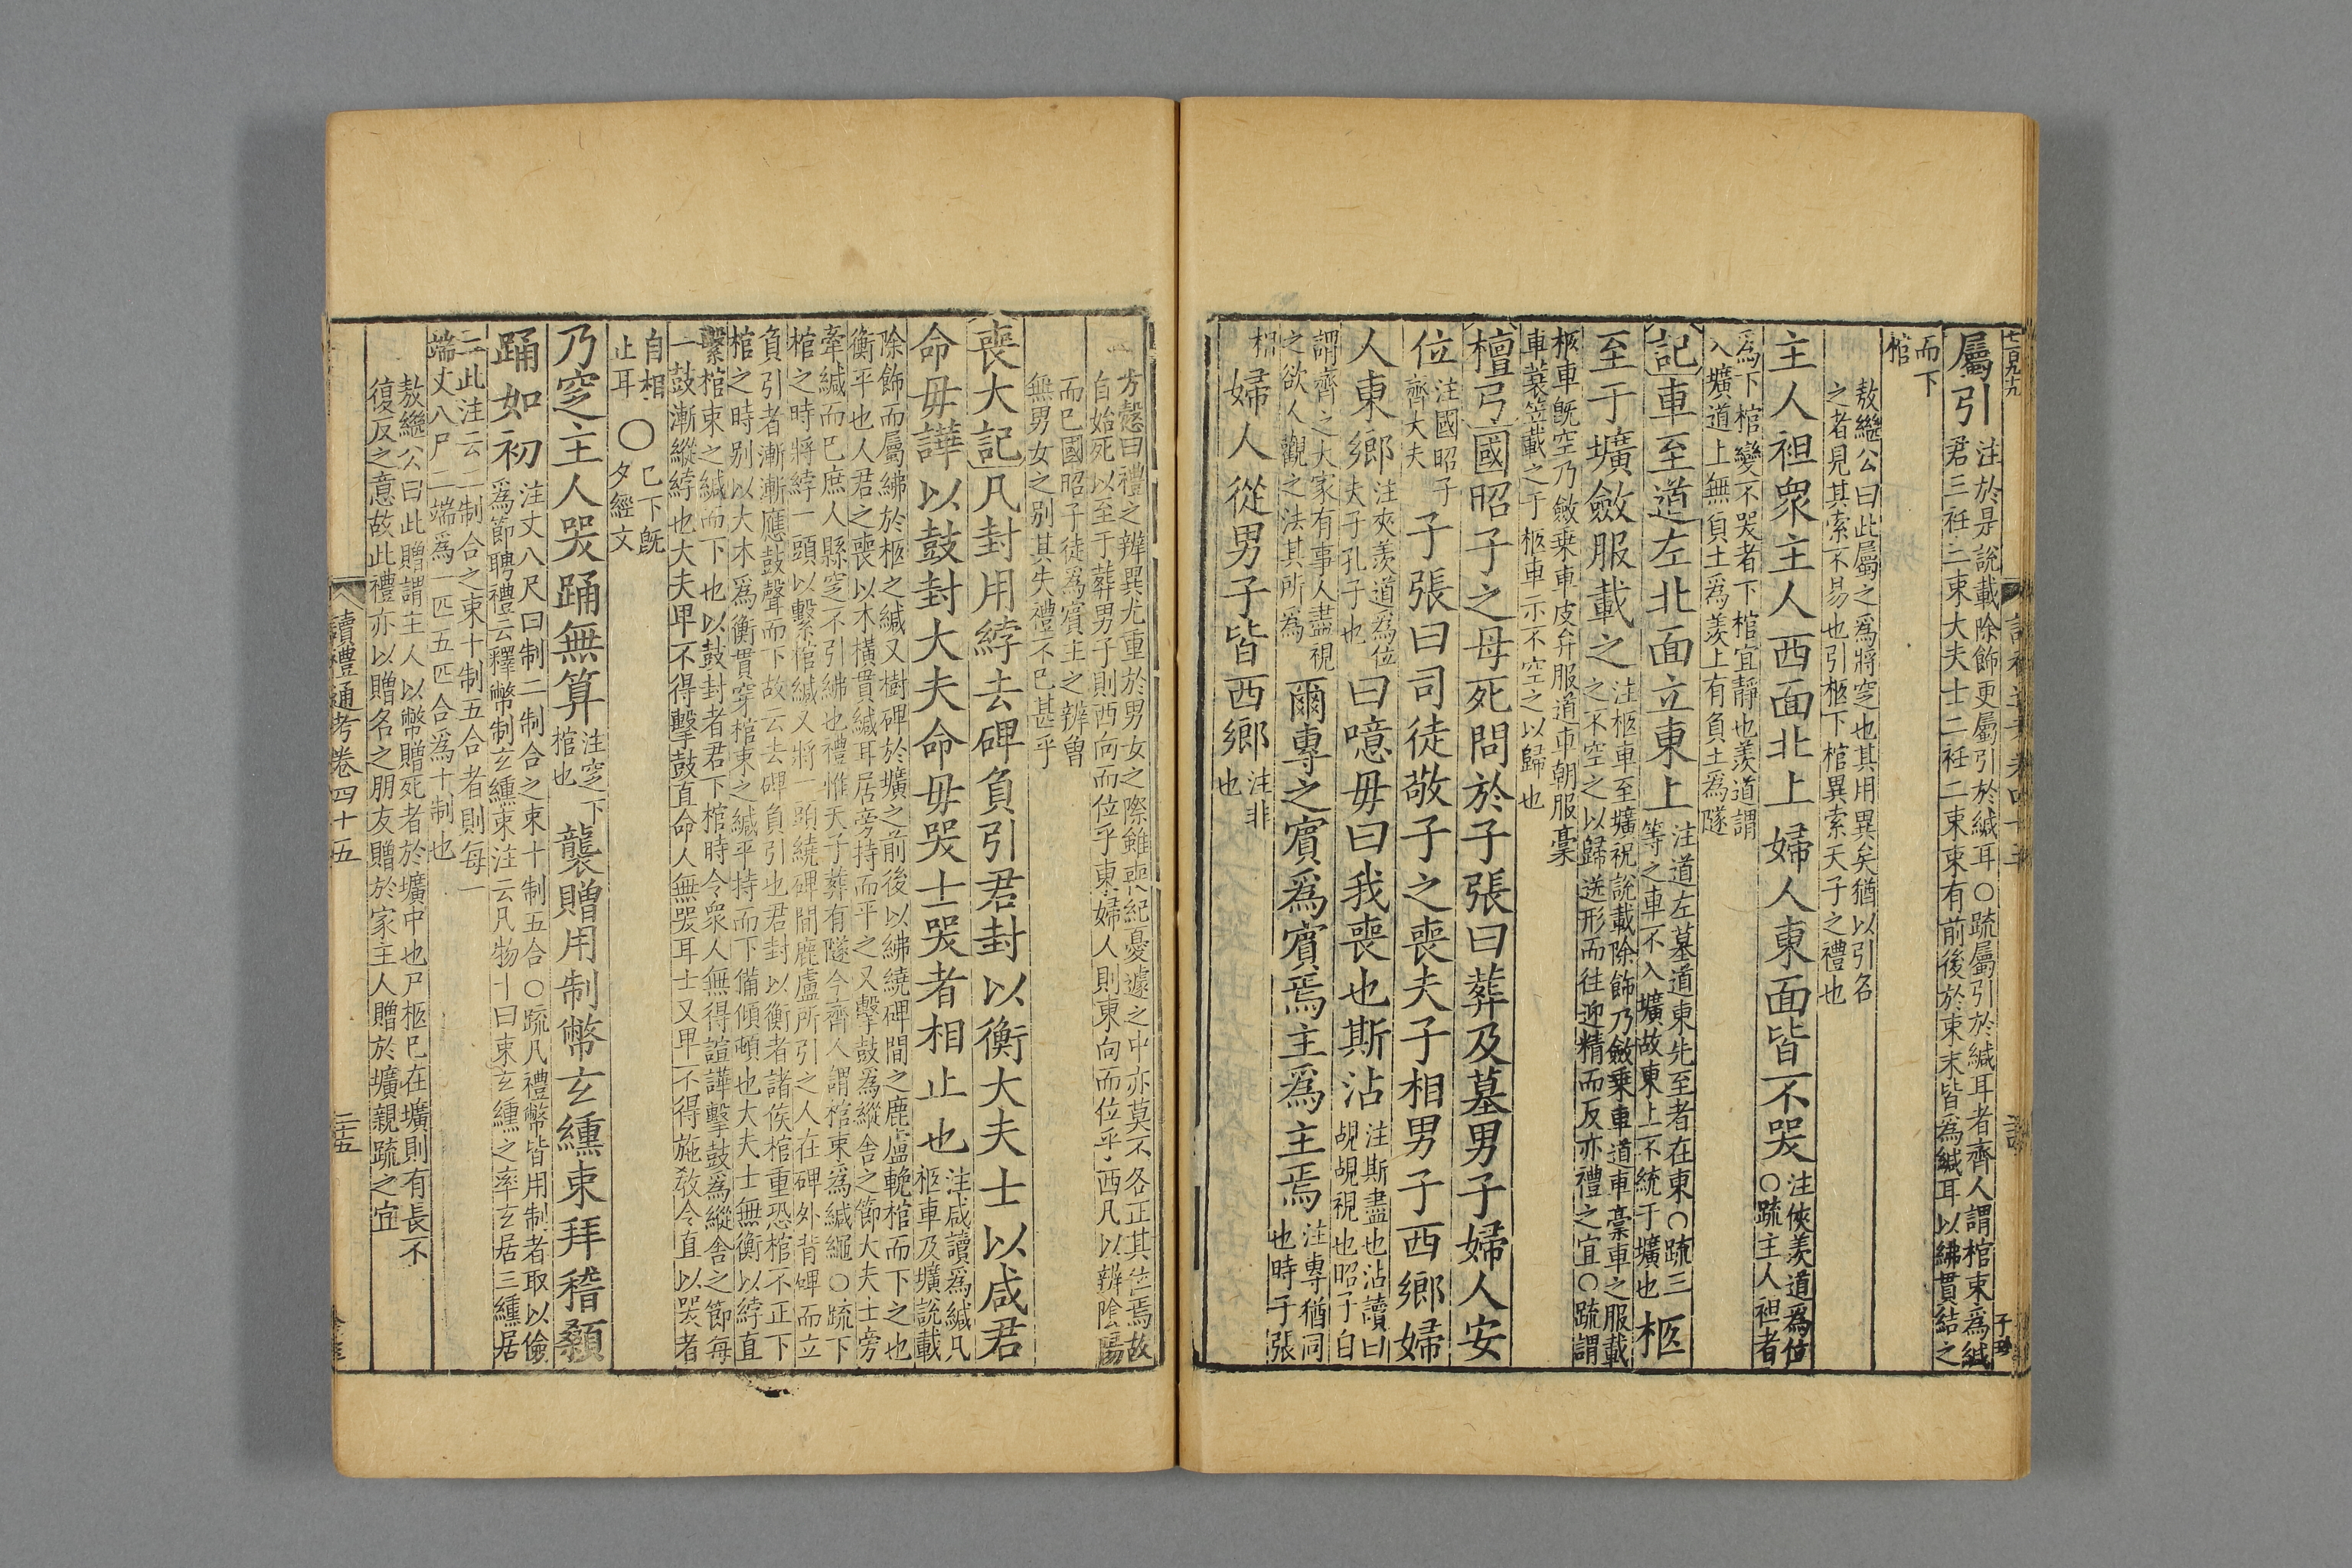 屬引
注於是說載除飾更屬引於緘耳○疏屬引於緘耳者齊人謂棺束爲緘
君三袵三束大夫士二袵二束束有前後於束末皆爲緘耳以紼貫結之
而下
棺
敖繼公曰此屬之爲將窆也其用異矣猶以引名
之者見其索不易也引柩下棺異索天子之禮也
主人袒衆主人西面北上婦人東面皆不哭
注俠羨道爲位
○疏主人袒者
爲下棺變不哭者下棺宜靜也羨道謂
入壙道上無負土爲羨上有負土爲隧
記車至道左北面立東上
注道左墓道東先至者在東○疏三
等之車不入壙故東上不統于壙也
柩
至于壙斂服載之
注柩車至壙祝說載除飾乃斂乗車道車稾車之服載
之不空之以歸送形而往迎精而反亦禮之宜○疏謂
柩車旣空乃斂乗車皮弁服道車朝服稾
車蓑笠載之于柩車示不空之以歸也
檀弓國昭子之母死問於子張曰葬及墓男子婦人安
位
注國昭子
齊大夫
子張曰司徒敬子之喪夫子相男子西鄉婦
人東鄉
注夾羨道爲位
夫子孔子也
曰噫毋曰我喪也斯沾
注斯盡也沾讀曰
覘覘視也昭子自
謂齊之大家有事人盡視
之欲人觀之法其所爲
爾專之賓爲賓焉主爲主焉
注專猶同
也時子張
相
婦人從男子皆西鄉
注非
也
方愨曰禮之辨異尤重於男女之際雖喪紀憂遽之中亦莫不各正其位焉故
自始死以至于葬男子則西向而位乎東婦人則東向而位乎西凡以辨陰陽
而巳國昭子徒爲賓主之辨曾
無男女之别其失禮不已甚乎
喪大記凡封用綍去碑負引君封以衡大夫士以咸君
命毋譁以鼓封大夫命毋哭士哭者相止也
注咸讀爲緘凡
柩車及壙說載
除飾而屬紼於柩之緘又樹碑於壙之前後以紼繞碑間之鹿盧輓棺而下之也
衡平也人君之喪以木橫貫緘耳居旁持而平之又擊鼓爲縱舍之節大夫士旁
牽緘而巳庶人縣窆不引紼也禮惟天子葬有隧今齊人謂棺束爲緘繩○疏下
棺之時將綍一頭以繫棺緘又將一頭繞碑間鹿盧所引之人在碑外背碑而立
負引者漸漸應鼓聲而下故云去碑負引也君封以衡者諸侯棺重恐棺不正下
棺之時别以大木爲衡貫穿棺束之緘平持而下備傾頓也大夫士無衡以綍直
繫棺束之緘而下也以鼓封者君下棺時令衆人無得諠譁擊鼓爲縱舍之節每
一鼓漸縱綍也大夫卑不得擊鼓直命人無哭耳士又卑不得施敎令直以哭者
自相
止耳
○
已下旣
夕經文
乃窆主人哭踊無算
注窆下
棺也
襲贈用制幣玄纁束拜稽顙
踊如初
注丈八尺曰制二制合之束十制五合○疏凡禮幣皆用制者取以儉
爲節聘禮云釋幣制玄纁束注云凡物十曰束玄纁之率玄居三纁居
二此注云二制合之束十制五合者則每一
端丈八尺二端爲一匹五匹合爲十制也
敖繼公曰此贈謂主人以幣贈死者於壙中也尸柩巳在壙則有長不
復反之意故此禮亦以贈名之朋友贈於家主人贈於壙親疏之宜
讀禮通考卷四十五
三五